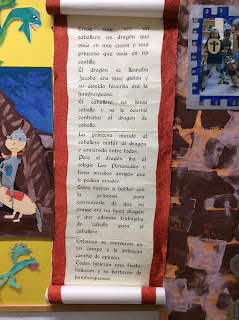 Érase una vez un
caballero, un dragón que
vivía en una cueva y una
princesa que vivía en un
castillo.
El dragón se llamaba
Jacobo era muy glotón y
su comida favorita era la
hamburguesa.
El caballero no tenía
caballo y se le ocurrió
contratar al dragón de
caballo.
La princesa mandó al
caballero matar al dragón
y comérselo entre todos.
Pero el dragón iba al
colegio Los Peñascales y
tenía muchos amigos que
le podían ayudar.
Estos fueron a hablar con
la princesa para
convencerla de que su
amigo era un buen dragón
y que además trabajaba
de caballo para el
caballero.
Entonces se reunieron en
un campo y la princesa
cambió de opinión.
Todos hicieron una fiesta,
bailaron y se hartaron de
hamburguesas.